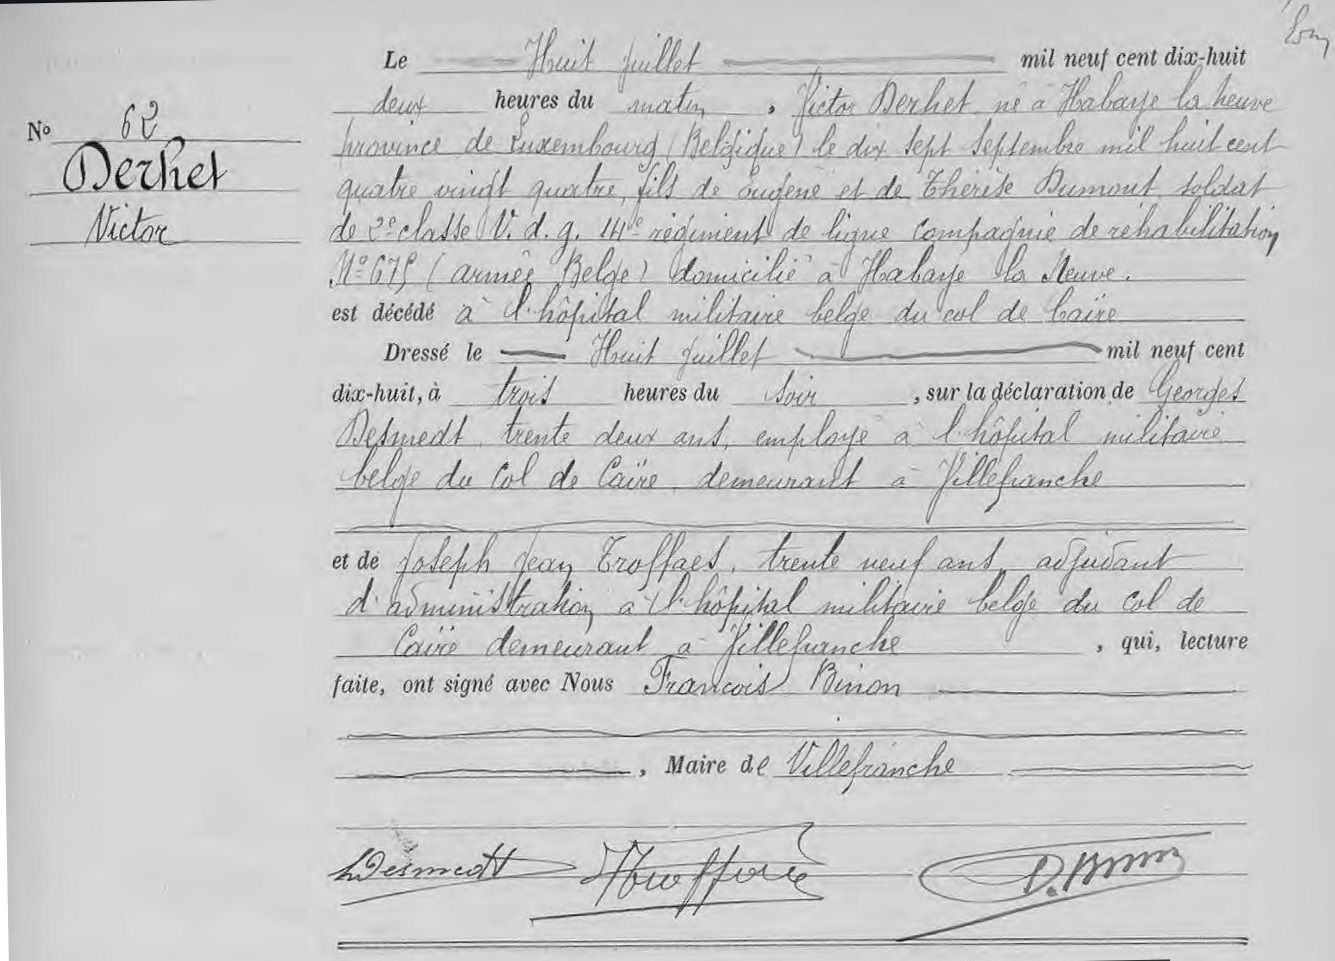 Le Huit Juillet mil neuf cent dix-huit
deux heures du matin, Victor Derhet né à Habaye la neuve
N° 62
province de Luxembourg (Belgique) le dix sept Septembre mil huit cent
Derhet
quatre vingt quatre, fils de Eugène et de Thérèse Dumont soldat
Victor
de 2e classe V. d. g. 14e régiment de ligne compagnie de réhabilitation
N° 675 (armée Belge) domicilié à Habaye la Neuve.
est décédé à l'hôpital militaire belge du col de Caïre
Dressé le Huit Juillet mil neuf cent
dix-huit, à trois heures du soir, sur la déclaration de Georges
Desmedt, trente deux ans, employé à l'hôpital militaire
belge du Col de Caïre, demeurant à Villefranche
et de Joseph Jean Troffaes, trente neuf ans, adjudant
d'administration à l'hôpital militaire belge du Col de
Caïre demeurant à Villefranche, qui, lecture
faite, ont signé avec Nous François Binon
, Maire de Villefranche
Desmedt